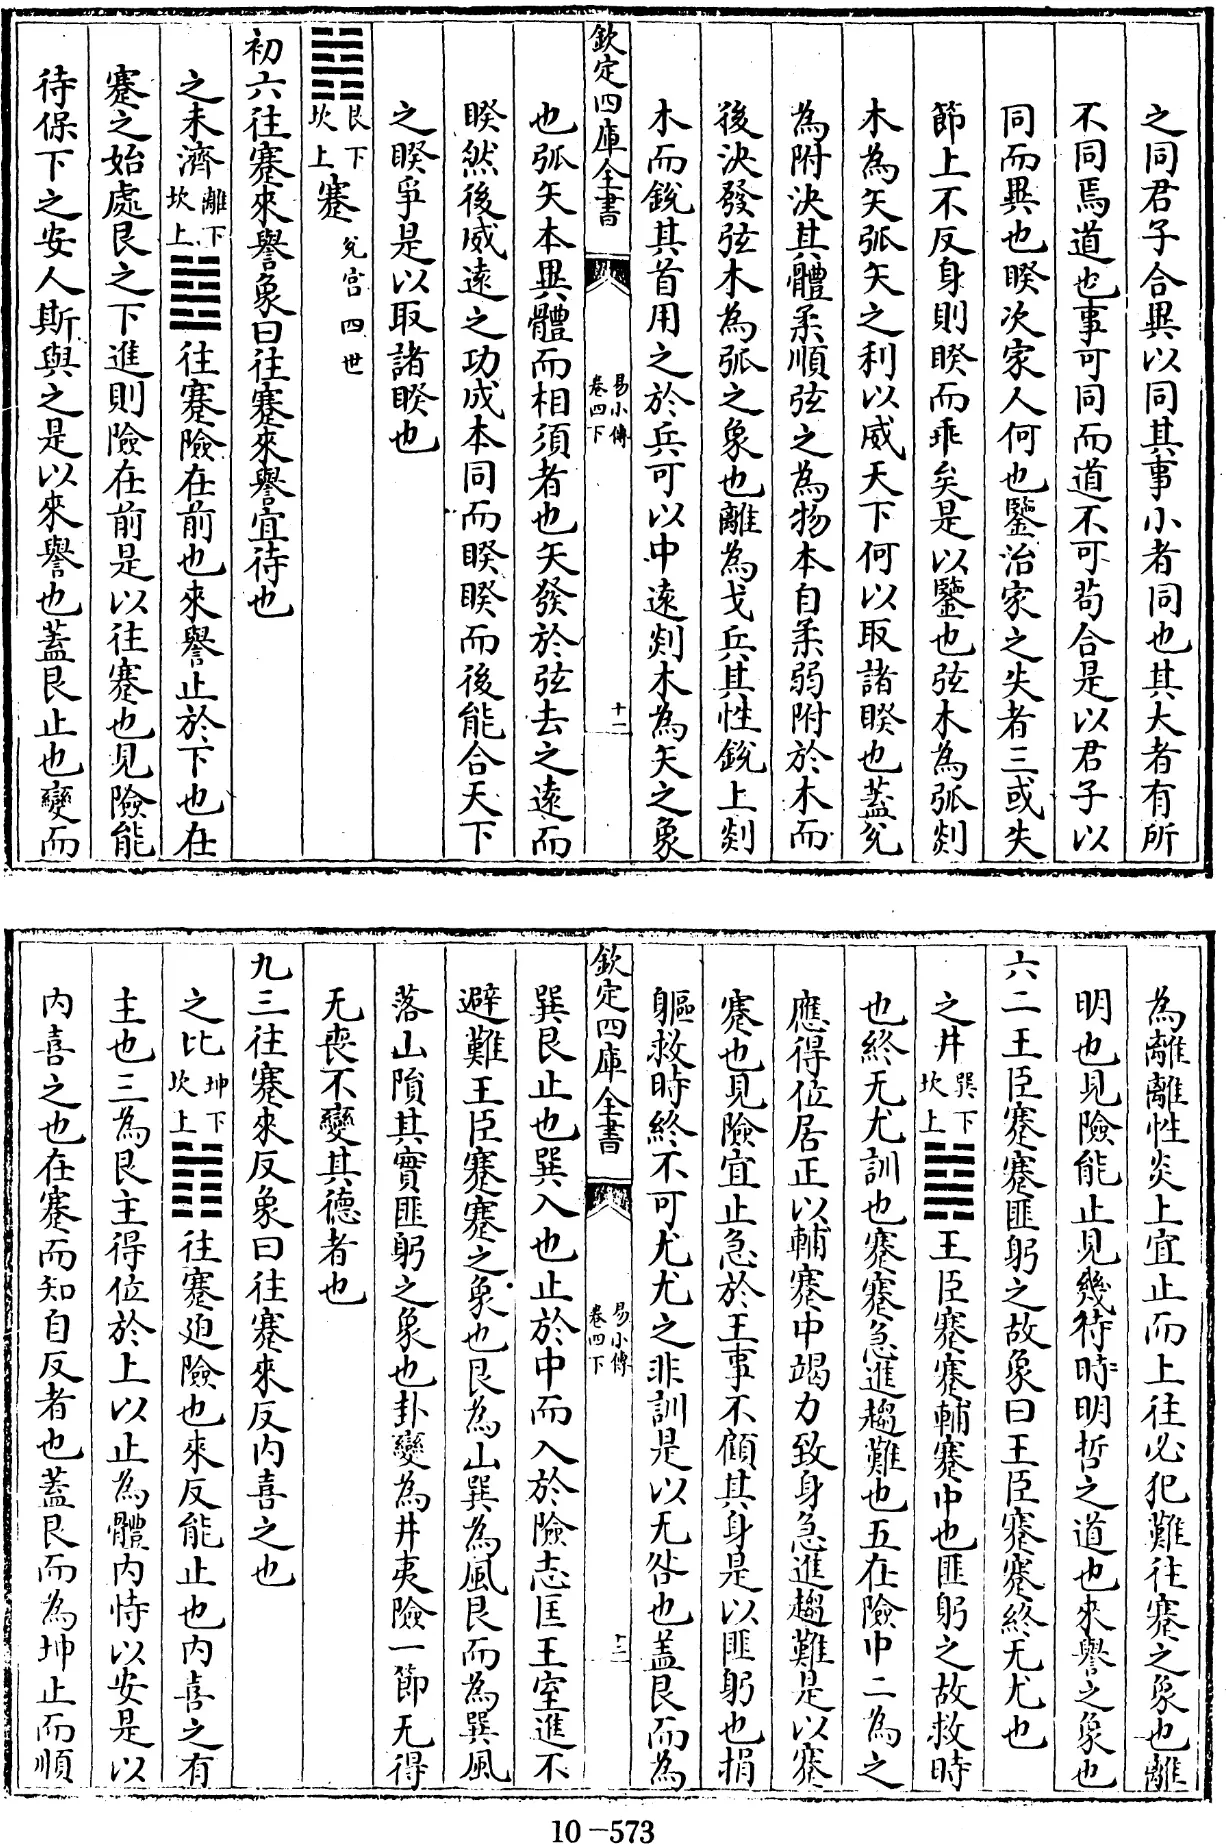 之同君子合異以同其事小者同也其大者有所
不同焉道也事可同而道不可茍合是以君子以
同而異也睽次家人何也鑒治家之失者三或失
節上不反身則睽而乖矣是以鑒也弦木為弧剡
木為矢弧矢之利以威天下何以取諸睽也蓋兊
為附決其體柔順弦之為物本自柔弱附於木而
後決發弦木為弧之象也離為戈兵其性銳上剡
木而銳其首用之於兵可以中遠剡木為矢之象
欽定四庫全書
易小傳
卷四下
十一
也弧矢本異體而相須者也矢發於弦去之遠而
睽然後威遠之功成本同而睽睽而後能合天下
之睽爭是以取諸睽也
䷦
艮下
坎上
蹇
兊宫四世
初六往蹇來譽象曰往蹇來譽宜待也
之未濟
離下
坎上
䷾
往蹇險在前也來譽止於下也在
蹇之始處艮之下進則險在前是以往蹇也見險能
待保下之安人斯與之是以來譽也蓋艮止也變而
為離離性炎上宜止而上往必犯難往蹇之象也離
明也見險能止見幾待時明哲之道也來譽之象也
六二王臣蹇蹇匪躬之故象曰王臣蹇蹇終无尤也
之井
巽下
坎上
䷯
王臣蹇蹇輔蹇中也匪躬之故救時
也終无尤訓也蹇蹇急進趨難也五在險中二為之
應得位居正以輔蹇中竭力致身急進趨難是以蹇
蹇也見險宜止急於王事不顧其身是以匪躬也捐
軀救時終不可尤尤之非訓是以无咎也蓋艮而為
欽定四庫全書
易小傳
卷四下
十二
巽艮止也巽入也止於中而入於險志匡王室進不
避難王臣蹇蹇之象也艮為山巽為風艮而為巽風
落山隕其實匪躬之象也卦變為井夷險一節无得
无喪不變其德者也
九三往蹇來反象曰往蹇來反内喜之也
之比
坤下
坎上
䷇
往蹇廹險也來反能止也内喜之有
主也三為艮主得位於上以止為體内恃以安是以
内喜之也在蹇而知自反者也蓋艮而為坤止而順
10-573